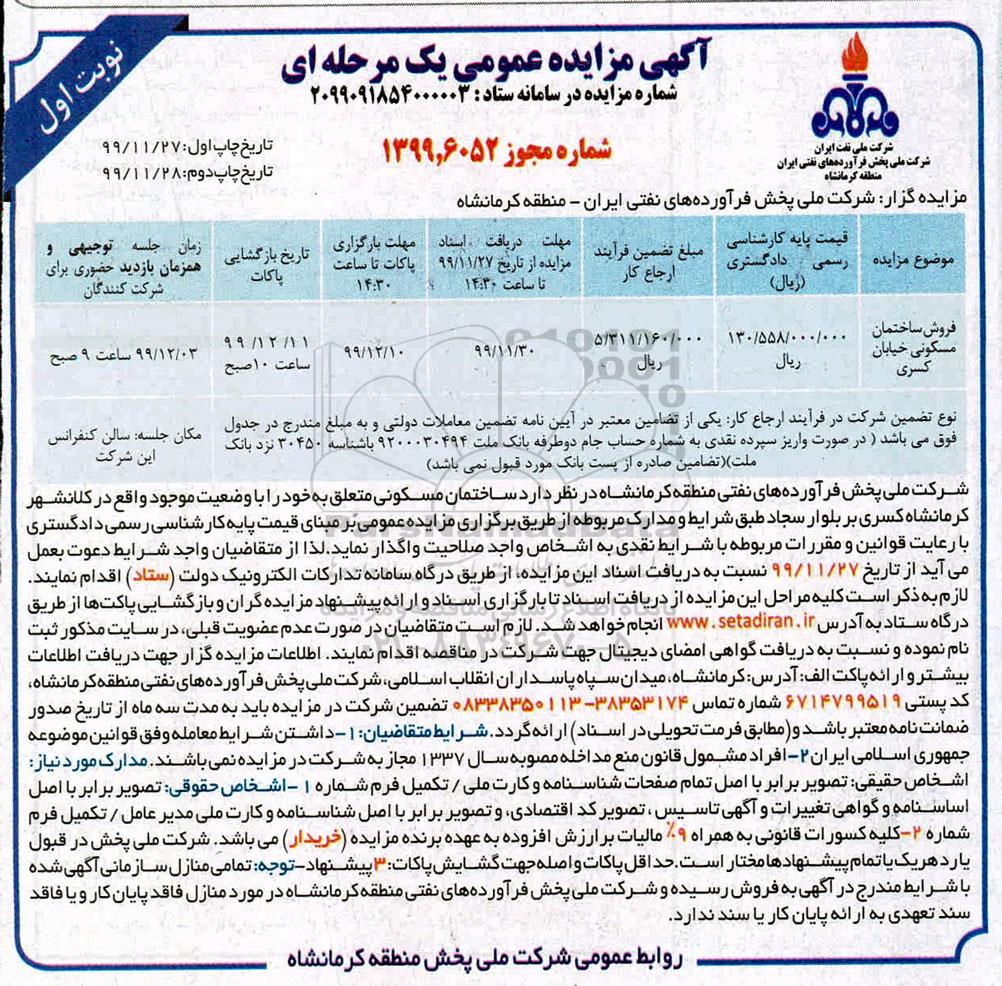 نوبت اول
آگهی مزایده عمومی یک مرحله ای
شماره مزایده در سامانه ستاد: ۲۰۹۹۰۹۱۸۵۴۰۰۰۰۰۳
شماره مجوز ۱۳۹۹,۶۰۵۲
تاریخ چاپ اول: ۹۹/۱۱/۲۷
تاریخ چاپ دوم: ۹۹/۱۱/۲۸
شرکت ملی نفت ایران
شرکت ملی پخش فرآورده‌های نفتی ایران
منطقه کرمانشاه
مزایده گزار: شرکت ملی پخش فرآورده‌های نفتی ایران - منطقه کرمانشاه
موضوع مزایده
قیمت پایه کارشناسی
رسمی دادگستری
(ریال)
مبلغ تضمین فرآیند
ارجاع کار
مهلت دریافت اسناد
مزایده از تاریخ ۹۹/۱۱/۲۷
تا ساعت ۱۴:۳۰
مهلت بارگزاری
پاکات تا ساعت
۱۴:۳۰
تاریخ بازگشایی
پاکات
زمان جلسه توجیهی و
همزمان بازدید حضوری برای
شرکت کنندگان
فروش ساختمان
مسکونی خیابان
کسری
۱۳۰/۵۵۸/۰۰۰/۰۰۰
ریال
۵/۳۱۱/۱۶۰/۰۰۰
ریال
۹۹/۱۱/۳۰
۹۹/۱۲/۱۰
۹۹/۱۲/۱۱
ساعت ۱۰صبح
۹۹/۱۲/۰۳ ساعت ۹ صبح
نوع تضمین شرکت در فرآیند ارجاع کار: یکی از تضامین معتبر در آیین نامه تضمین معاملات دولتی و به مبلغ مندرج در جدول
فوق می باشد ( در صورت واریز سپرده نقدی به شماره حساب جام دوطرفه بانک ملت ۹۲۰۰۰۳۰۴۹۴ باشناسه ۳۰۴۵۰ نزد بانک
ملت)(تضامین صادره از پست بانک مورد قبول نمی باشد)
مکان جلسه: سالن کنفرانس
این شرکت
شرکت ملی پخش فرآورده‌های نفتی منطقه کرمانشاه در نظر دارد ساختمان مسکونی متعلق به خود را با وضعیت موجود واقع در کلانشهر
کرمانشاه کسری بر بلوار سجاد طبق شرایط و مدارک مربوطه از طریق برگزاری مزایده عمومی بر مبنای قیمت پایه کارشناسی رسمی دادگستری
با رعایت قوانین و مقررات مربوطه با شرایط نقدی به اشخاص واجد صلاحیت واگذار نماید.لذا از متقاضیان واجد شرایط دعوت بعمل
می آید از تاریخ ۹۹/۱۱/۲۷ نسبت به دریافت اسناد این مزایده، از طریق درگاه سامانه تدارکات الکترونیک دولت (ستاد) اقدام نمایند.
لازم به ذکر است کلیه مراحل این مزایده از دریافت اسناد تا بارگزاری اسناد و ارائه پیشنهاد مزایده گران و بازگشایی پاکت‌ها از طریق
درگاه ستاد به آدرس www.setadiran.ir انجام خواهد شد. لازم است متقاضیان در صورت عدم عضویت قبلی، در سایت مذکور ثبت
نام نموده و نسبت به دریافت گواهی امضای دیجیتال جهت شرکت در مناقصه اقدام نمایند. اطلاعات مزایده گزار جهت دریافت اطلاعات
بیشتر و ارائه پاکت الف: آدرس: کرمانشاه، میدان سپاه پاسداران انقلاب اسلامی، شرکت ملی پخش فرآورده‌های نفتی منطقه کرمانشاه،
کد پستی ۶۷۱۴۷۹۹۵۱۹ شماره تماس ۳۸۳۵۳۱۷۴-۰۸۳۳۸۳۵۰۱۱۳ تضمین شرکت در مزایده باید به مدت سه ماه از تاریخ صدور
ضمانت نامه معتبر باشد و(مطابق فرمت تحویلی در اسناد) ارائه گردد.شرایط متقاضیان: ۱-داشتن شرایط معامله وفق قوانین موضوعه
جمهوری اسلامی ایران ۲- افراد مشمول قانون منع مداخله مصوبه سال ۱۳۳۷ مجاز به شرکت در مزایده نمی باشند. مدارک مورد نیاز:
اشخاص حقیقی: تصویر برابر با اصل تمام صفحات شناسنامه و کارت ملی / تکمیل فرم شماره ۱ -اشخاص حقوقی: تصویر برابر با اصل
اساسنامه و گواهی تغییرات و آگهی تاسیس ، تصویر کد اقتصادی، و تصویر برابر با اصل شناسنامه و کارت ملی مدیر عامل / تکمیل فرم
شماره ۲-کلیه کسورات قانونی به همراه ۹٪ مالیات بر ارزش افزوده به عهده برنده مزایده (خریدار) می باشد. شرکت ملی پخش در قبول
یا رد هر یک یا تمام پیشنهادها مختار است.حداقل پاکات واصله جهت گشایش پاکات: ۳پیشنهاد-توجه: تمامی منازل سازمانی آگهی شده
با شرایط مندرج در آگهی به فروش رسیده و شرکت ملی پخش فرآورده‌های نفتی منطقه کرمانشاه در مورد منازل فاقد پایان کار و یا فاقد
سند تعهدی به ارائه پایان کار یا سند ندارد.
روابط عمومی شرکت ملی پخش منطقه کرمانشاه
ParsNamadData